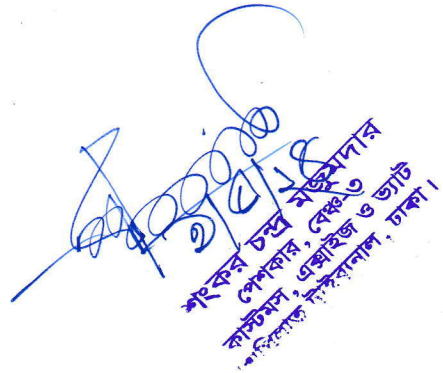 শংকর চন্দ্র মজুমদার
পেশকার, বেঞ্চ-৩
কাস্টমস, এক্সাইজ ও ভ্যাট
ট্রাইবুনাল, ঢাকা।